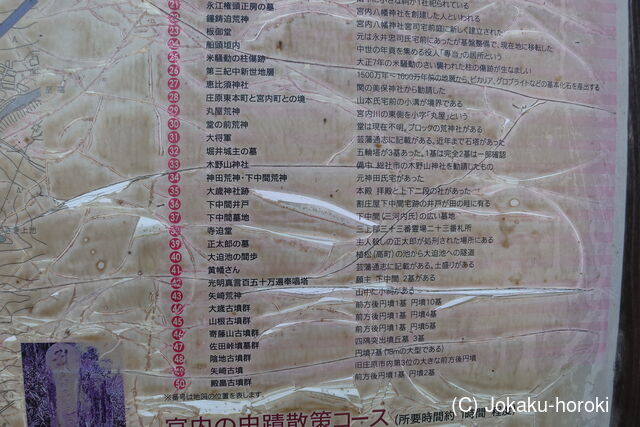 21 永江権頭正房の墓
22 鐘鋳迫荒神 宮内八幡神社を創建した人といわれる
23 板御堂 宮内八幡神社宮司宅前庭に新しく建立された
24 船頭垣内 元は永井忠司氏宅前にあったが基盤整備で、現在地に移転した
25 米騒動の柱傷跡 中世の年貢を集める役人「専当」の居所という
26 第三紀中新世地層 大正7年の米騒動のさい襲われた柱の傷跡が生なましい
27 恵比須神社 1500万年~1600万年前の地層から、ビカリア、グロブライトなどの基本化石を産出する
28 庄原東本町と宮内町との境 関の美保神社から勧請した
29 丸屋荒神 山本氏宅前の小溝が境界である
30 堂の前荒神 宮内川の東側を小字「丸屋」という
31 大将軍 堂は現在不明。ブロックの荒神社がある
32 堀井城主の墓 芸藩通志に記載がある。近年まで石塔があった
33 木野山神社 五輪塔が3基あった。1基は完全2基は一部確認
34 神田荒神・下中間荒神 備中、総社市の木野山神社を勧請したもの
35 大歳神社跡 元神田氏宅があった
36 下中間井戸 本殿 拝殿と上下二段の社があった
37 下中間墓地 割庄屋下中間宅跡の井戸が田の畦に有る
38 寺迫堂 下中間(三河内氏)の広い墓地
39 正太郎の墓 三上郡三十三番霊場二十三番札所
40 大迫池の間歩 主人殺しの正太郎が処刑された場所にある
41 黄幡さん 植松(高町)の池から大迫池への隧道
42 光明真言百五十万遍奉唱塔 芸藩通志に記載がある。土盛りがある
43 矢崎荒神 願主 下中間 2基がある
44 大歳古墳群 山中に小祠がある
45 山根古墳群 前方後円墳1基 円墳10基
46 寄藤山古墳群 前方後円墳1基 円墳4基
47 佐田峠墳墓群 前方後円墳1基 円墳5基
48 陰地古墳群 四隅突出墳丘墓 3基
49 矢崎古墳 円墳7基(18mの大型である)
50 殿畠古墳群 旧庄原市内第3位の大きな前方後円墳
前方後円墳1基 円墳2基
※番号は地図の位置を表します。
宮内の史蹟散策コース(所要時間約 時間 程度)
(C) Jokaku-horoki